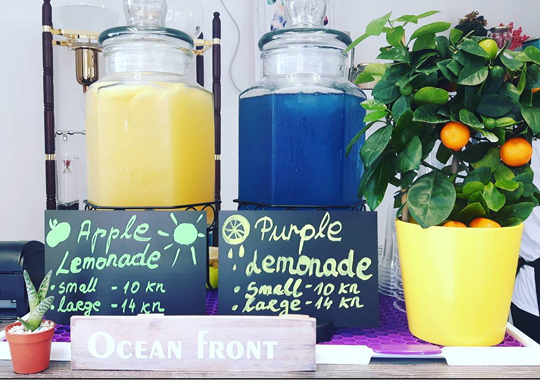 Apple
Lemonade
• small - 10 kn
• large - 14 kn
Purple
Lemonade
• small - 10 kn
• large - 14 kn
OCEAN FRONT